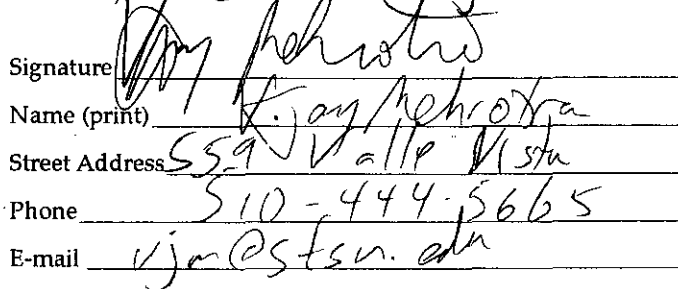 Signature Vijay Mehrotra
Name (print) Vijay Mehrotra
Street Address 559 Valle Vista
Phone 510-444-5665
E-mail vjm@stsn.edu